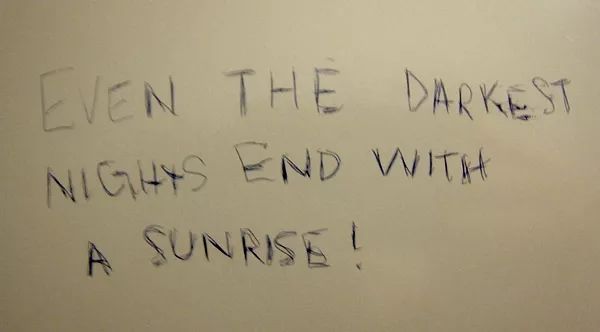 EVEN THE DARKEST
NIGHTS END WITH
A SUNRISE!